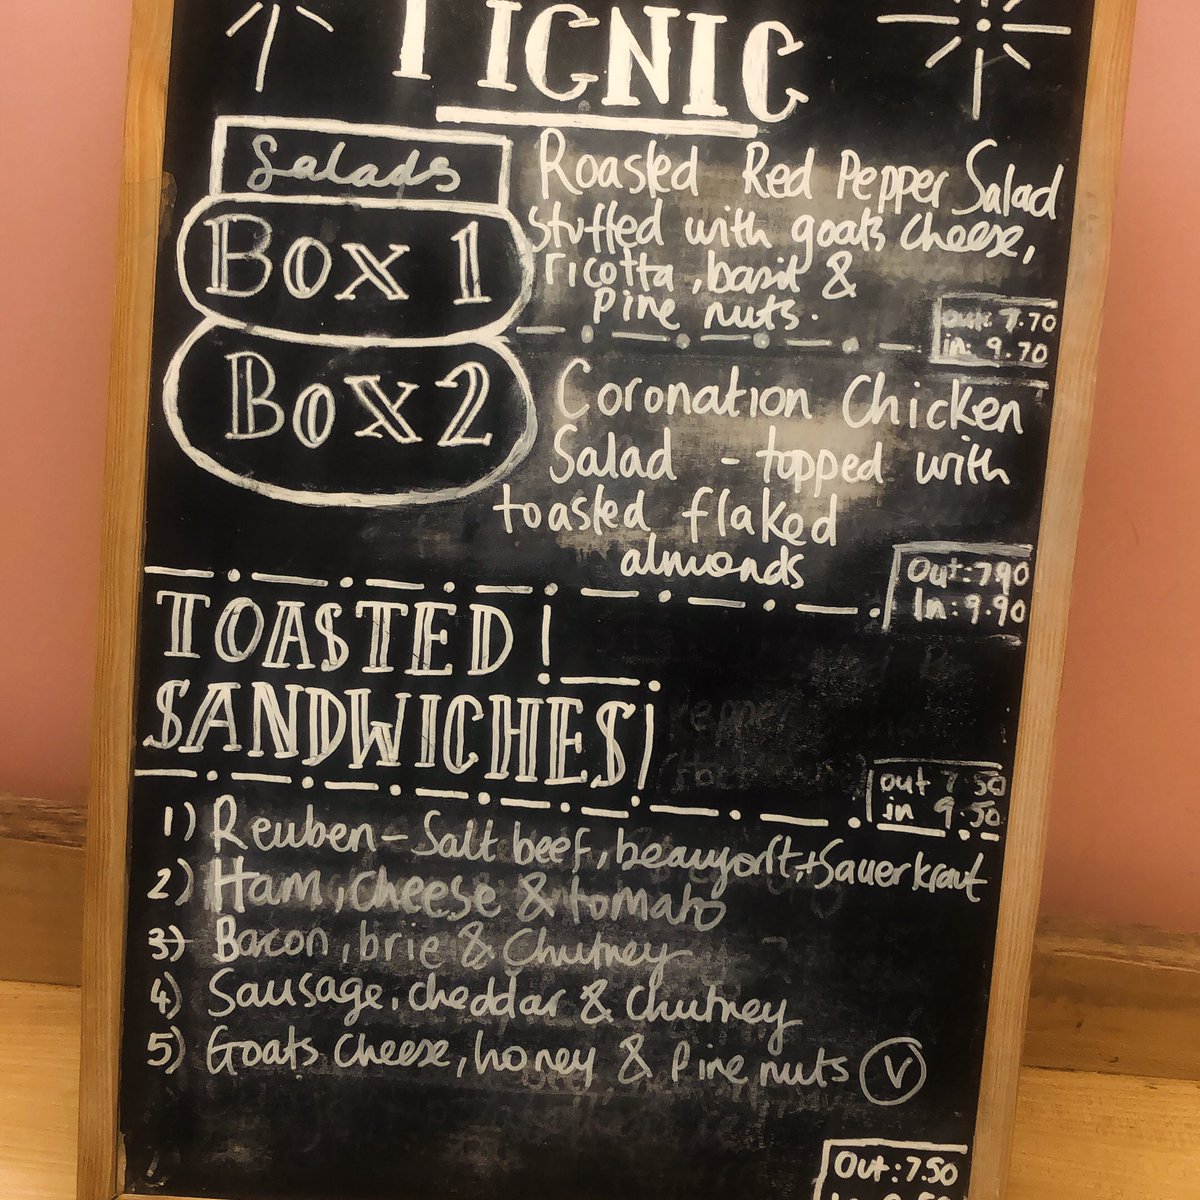 PICNIC
Salads
Box 1
Roasted Red Pepper Salad
stuffed with goats cheese,
ricotta, basil &
pine nuts.
out: 7.70
in: 9.70
Box 2
Coronation Chicken
Salad - topped with
toasted flaked
almonds
Out: 7.90
In: 9.90
TOASTED
SANDWICHES
out 7.50
in 9.50
1) Reuben - Salt beef, beauyorlt, + Sauerkraut
2) Ham, cheese & tomato
3) Bacon, brie & Chutney
4) Sausage, cheddar & Chutney
5) Goats cheese, honey & pine nuts V
Out: 7.50